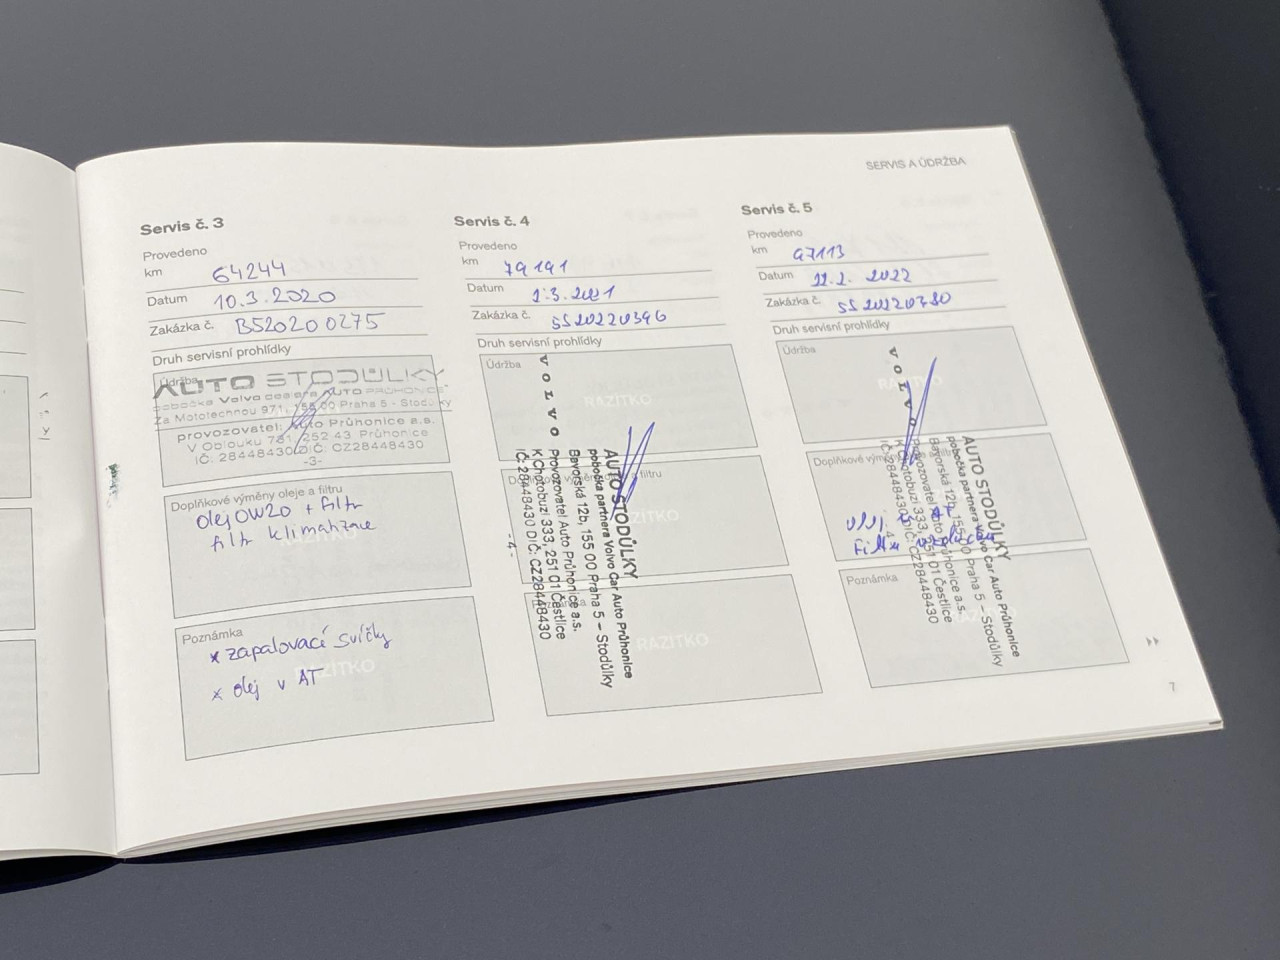 SERVIS A ÚDRŽBA
Servis č. 3
Provedeno
km 64244
Datum 10.3.2020
Zakázka č. BS20200275
Druh servisní prohlídky
Údržba
AUTO STODŮLKY
pobočka Volvo dealera AUTO PRŮHONICE
Za Mototechnou 971, 155 00 Praha 5 - Stodůlky
provozovatel: Auto Průhonice a.s.
V Oblouku 731, 252 43 Průhonice
IČ: 28448430 DIČ: CZ28448430
-3-
Doplňkové výměny oleje a filtru
olej 0W20 + filtr
filtr klimatizace
Poznámka
RAZÍTKO
x zapalovací svíčky
x olej v AT
Servis č. 4
Provedeno
km 79191
Datum 1.3.2021
Zakázka č. SS20220396
Druh servisní prohlídky
Údržba
RAZÍTKO
VOLVO
AUTO STODŮLKY
pobočka partnera Volvo Car Auto Průhonice
Bavorská 12b, 155 00 Praha 5 – Stodůlky
Provozovatel Auto Průhonice a.s.
K Chotobuzi 333, 251 01 Čestlice
IČ: 28448430 DIČ: CZ28448430
- 4 -
filtru
RAZÍTKO
Servis č. 5
Provedeno
km 97113
Datum 11.2. 2022
Zakázka č. SS20220780
Druh servisní prohlídky
Údržba
VOLVO
AUTO STODŮLKY
pobočka partnera Volvo Car Auto Průhonice
Bavorská 12b, 155 00 Praha 5 – Stodůlky
Provozovatel Auto Průhonice a.s.
K Chotobuzi 333, 251 01 Čestlice
IČ: 28448430 DIČ: CZ28448430
Doplňkové výměny
Poznámka
7